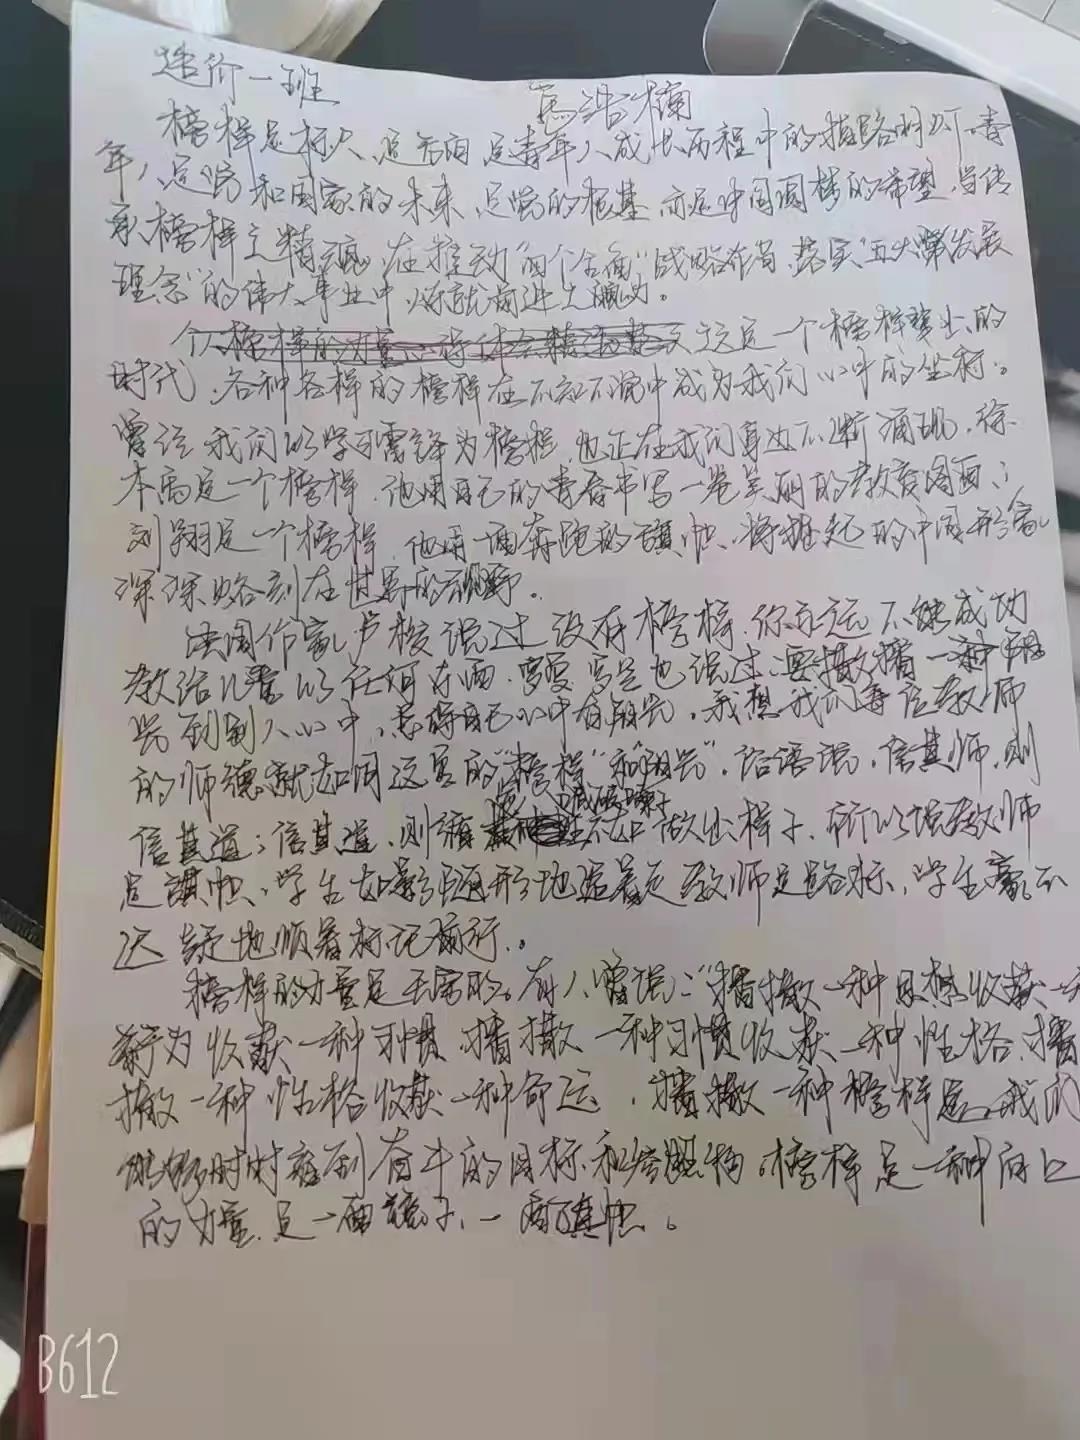 造价一班
马浩楠
榜样是标尺,是方向,是青年人成长历程中的指路明灯。青
年人是党和国家的未来,是党的根基,亦是中国圆梦的希望,当传
承榜样之精魂,在推动“四个全面”战略布局,落实“五大发展
理念”的伟大事业中,前进
这是一个榜样辈出的
时代,各种各样的榜样在不知不觉中成为我们心中的坐标。
曾经我们以学习雷锋为榜样,也正在我们身边不断涌现,徐
本禹是一个榜样,他用自己的青春书写一卷美丽的教育图画;
刘翔是一个榜样,他用一面奔跑的旗帜,将崛起的中国形象
深深烙刻在世界的视野。
法国作家卢梭说过没有榜样,你永远不能成功
教给儿童以任何东西,也说过:要播一种阳
光到别人心中,总得自己心中有阳光,我想我们每位教师
的师德就如同这里的“榜样”和“阳光”,论语说,信其师,则
信其道;信其道,则 喊破嗓子不如做出样子,所以说教师
是旗帜,学生如影随形地追着走,教师是路标,学生毫不
迟疑地顺着标记前行。
榜样的力量是无穷的。有人曾说:“播撒一种思想收获一
行为收获一种习惯,播撒一种习惯收获一种性格,播
撒一种性格收获一种命运,播撒一种榜样
时时看到奋斗的目标和参照物。榜样是一种向上
的力量,是一面镜子,一面旗帜。
B612